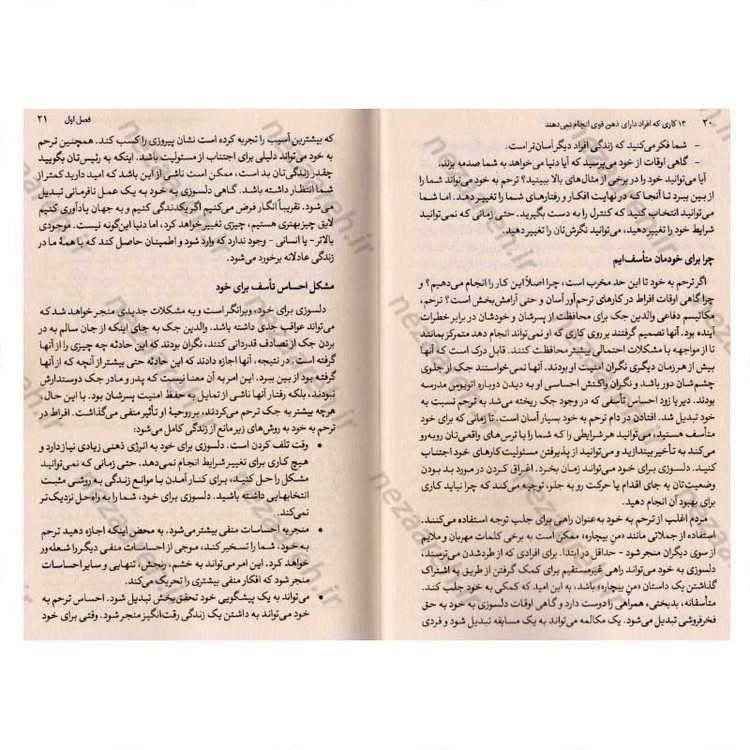 ۲۰ ۱۳ کاری که افراد دارای ذهن قوی انجام نمی‌دهند
- شما فکر می‌کنید که زندگی افراد دیگر آسان‌تر است.
- گاهی اوقات از خود می‌پرسید که آیا دنیا می‌خواهد به شما صدمه بزند.
آیا می‌توانید خود را در برخی از مثال‌های بالا ببینید؟ ترحم به خود می‌تواند شما را
از بین ببرد تا آنجا که در نهایت افکار و رفتارهای شما را تغییر دهد. اما شما
می‌توانید انتخاب کنید که کنترل را به دست بگیرید. حتی زمانی که نمی‌توانید
شرایط خود را تغییر دهید، می‌توانید نگرش‌تان را تغییر دهید.
چرا برای خودمان متأسف‌ایم
اگر ترحم به خود تا این حد مخرب است، چرا اصلاً این کار را انجام می‌دهیم؟ و
چرا گاهی اوقات افراط در کارهای ترحم‌آور آسان و حتی آرامش‌بخش است؟ ترحم،
مکانیسم دفاعی والدین جک برای محافظت از پسرشان و خودشان در برابر خطرات
آینده بود. آنها تصمیم گرفتند بر روی کاری که او نمی‌تواند انجام دهد متمرکز بمانند
تا از مواجهه با مشکلات احتمالی بیشتر محافظت کنند. قابل درک است که آنها
بیش از هر زمان دیگری نگران امنیت او بودند. آنها نمی‌خواستند جک از جلوی
چشم‌شان دور باشد و نگران واکنش احساسی او به دیدن دوباره اتوبوس مدرسه
بودند. دیر یا زود احساس تأسفی که در وجود جک ریخته می‌شد به ترحم نسبت به
خود تبدیل شد. افتادن در دام ترحم به خود بسیار آسان است. تا زمانی که برای خود
متأسف هستید، می‌توانید هر شرایطی را که شما را با ترس‌های واقعی‌تان روبه‌رو
می‌کند به تأخیر بیندازید و می‌توانید از پذیرفتن مسئولیت کارهای خود اجتناب
کنید. دلسوزی برای خود می‌تواند زمان بخرد. اغراق کردن در مورد بد بودن
وضعیت‌تان به جای اقدام یا حرکت رو به جلو، توجیه می‌کند که چرا نباید کاری
برای بهبود آن انجام دهید.
مردم اغلب از ترحم به خود به‌عنوان راهی برای جلب توجه استفاده می‌کنند.
استفاده از جملاتی مانند «منِ بیچاره» ممکن است به برخی کلمات مهربان و ملایم
از سوی دیگران منجر شود - حداقل در ابتدا. برای افرادی که از طرد شدن می‌ترسند،
دلسوزی به خود می‌تواند راهی غیرمستقیم برای کمک گرفتن از طریق به اشتراک
گذاشتن یک داستان «منِ بیچاره» باشد، به این امید که کمکی به خود جلب کند.
متأسفانه، بدبختی، همراهی را دوست دارد و گاهی اوقات دلسوزی به خود به حق
فخرفروشی تبدیل می‌شود. یک مکالمه می‌تواند به یک مسابقه تبدیل شود و فردی
فصل اول ۲۱
که بیشترین آسیب را تجربه کرده است نشان پیروزی را کسب کند. همچنین ترحم
به خود می‌تواند دلیلی برای اجتناب از مسئولیت باشد. اینکه به رئیس‌تان بگویید
چقدر زندگی‌تان بد است، ممکن است ناشی از این باشد که امید دارید کمتر از
شما انتظار داشته باشد. گاهی دلسوزی به خود به یک عمل نافرمانی تبدیل
می‌شود. تقریباً انگار فرض می‌کنیم اگر یکدندگی کنیم و به جهان یادآوری کنیم
لایق چیز بهتری هستیم، چیزی تغییر خواهد کرد، اما دنیا این‌گونه نیست. موجودی
بالاتر - یا انسانی - وجود ندارد که وارد شود و اطمینان حاصل کند که با همهٔ ما در
زندگی عادلانه برخورد می‌شود.
مشکل احساس تأسف برای خود
دلسوزی برای خود، ویرانگر است و به مشکلات جدیدی منجر خواهد شد که
می‌تواند عواقب جدی داشته باشد. والدین جک به جای اینکه از جان سالم به در
بردن جک از تصادف قدردانی کنند، نگران بودند که این حادثه چه چیزی را از آنها
گرفته است. در نتیجه، آنها اجازه دادند که این حادثه حتی بیشتر از آنچه که از آنها
گرفته بود از بین ببرد. این امر به آن معنا نیست که پدر و مادر جک دوستدارش
نبودند، بلکه رفتار آنها ناشی از تمایل به حفظ امنیت پسرشان بود. با این حال،
هرچه بیشتر به جک ترحم می‌کردند، بر روحیهٔ او تأثیر منفی می‌گذاشت. افراط در
ترحم به خود به روش‌های زیر مانع از زندگی کامل می‌شود:
• وقت تلف کردن است. دلسوزی برای خود به انرژی ذهنی زیادی نیاز دارد و
هیچ کاری برای تغییر شرایط انجام نمی‌دهد. حتی زمانی که نمی‌توانید
مشکل را حل کنید، برای کنار آمدن با موانع زندگی به روشی مثبت
انتخابهایی داشته باشید. دلسوزی برای خود، شما را به راه‌حل نزدیک‌تر
نمی‌کند.
• منجر به احساسات منفی بیشتر می‌شود. به محض اینکه اجازه دهید ترحم
به خود، شما را تسخیر کند، موجی از احساسات منفی دیگر را شعله‌ور
خواهد کرد. این امر می‌تواند به خشم، رنجش، تنهایی و سایر احساسات
منجر شود که افکار منفی بیشتری را تحریک می‌کند.
• می‌تواند به یک پیشگویی خود تحقق‌بخش تبدیل شود. احساس ترحم به
خود می‌تواند به داشتن یک زندگی رقت‌انگیز منجر شود. وقتی برای خود
nezaareh.ir